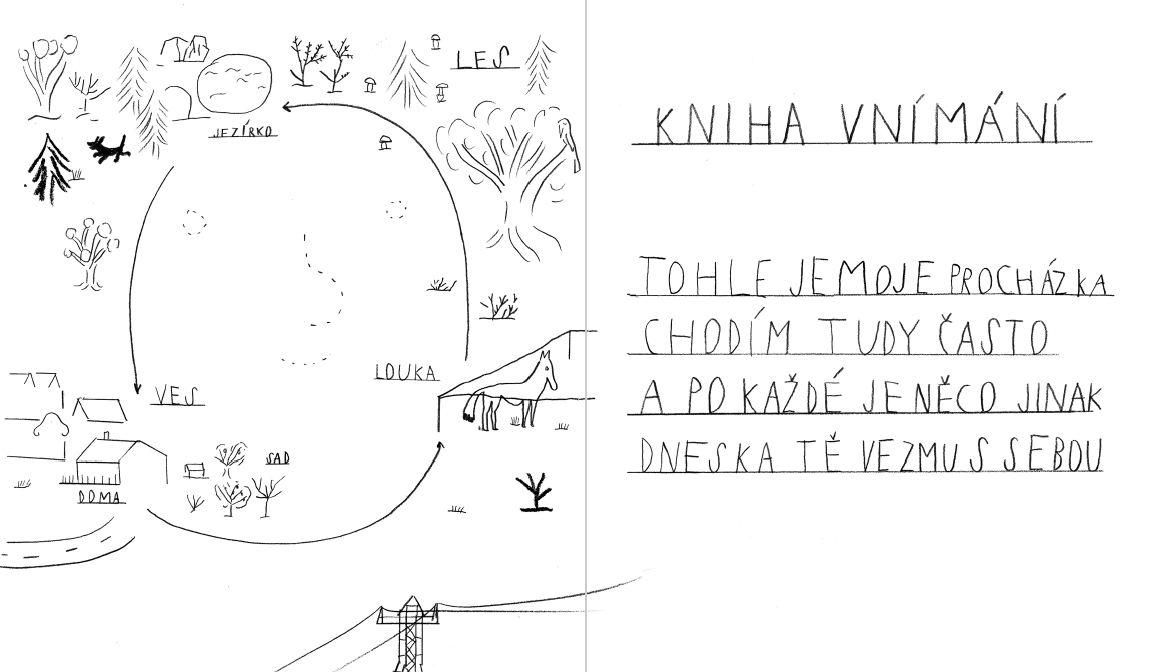 LES
JEZÍRKO
LOUKA
VES
SAD
DOMA
KNIHA VNÍMÁNÍ
TOHLE JE MOJE PROCHÁZKA
CHODÍM TUDY ČASTO
A PO KAŽDÉ JE NĚCO JINAK
DNESKA TĚ VEZMU S SEBOU